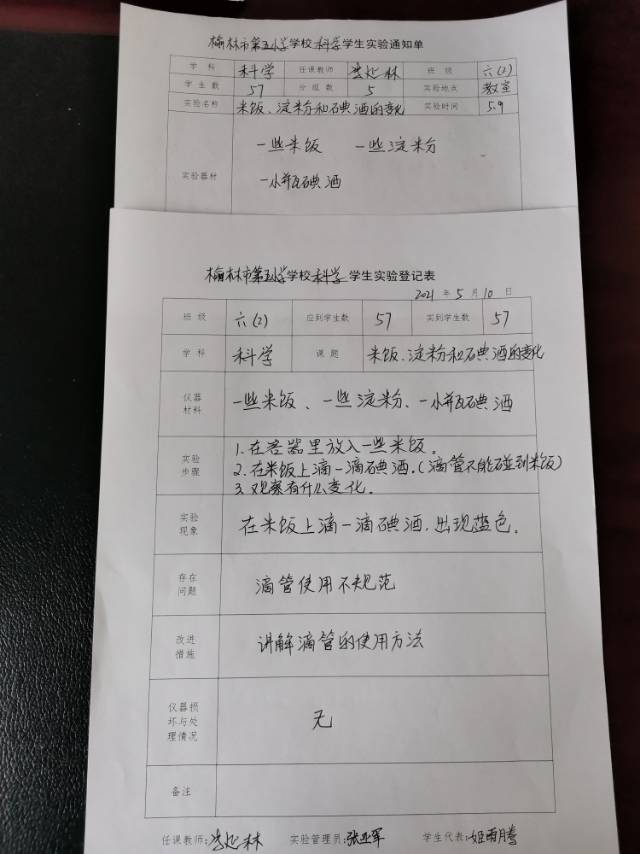 榆林市第五小学学校科学学生实验通知单
学科 科学 任课教师 林 班级 六(2)
学生数 57 分组数 5 实验地点 教室
实验名称 米饭、淀粉和碘酒的变化 实验时间 5.9
一些米饭 一些淀粉
实验器材
一小瓶碘酒
榆林市第五小学学校科学学生实验登记表
2021年5月10日
班级 六(2) 应到学生数 57 实到学生数 57
学科 科学 课题 米饭、淀粉和碘酒的变化
仪器材料 一些米饭、一些淀粉、一小瓶碘酒
实验步骤 1.在容器里放入一些米饭。
2.在米饭上滴一滴碘酒.(滴管不能碰到米饭)
3.观察有什么变化.
实验现象 在米饭上滴一滴碘酒.出现蓝色.
存在问题 滴管使用不规范
改进措施 讲解滴管的使用方法
仪器损坏与处理情况 无
备注
任课教师: 林 实验管理员:张亚军 学生代表:姬雨腾